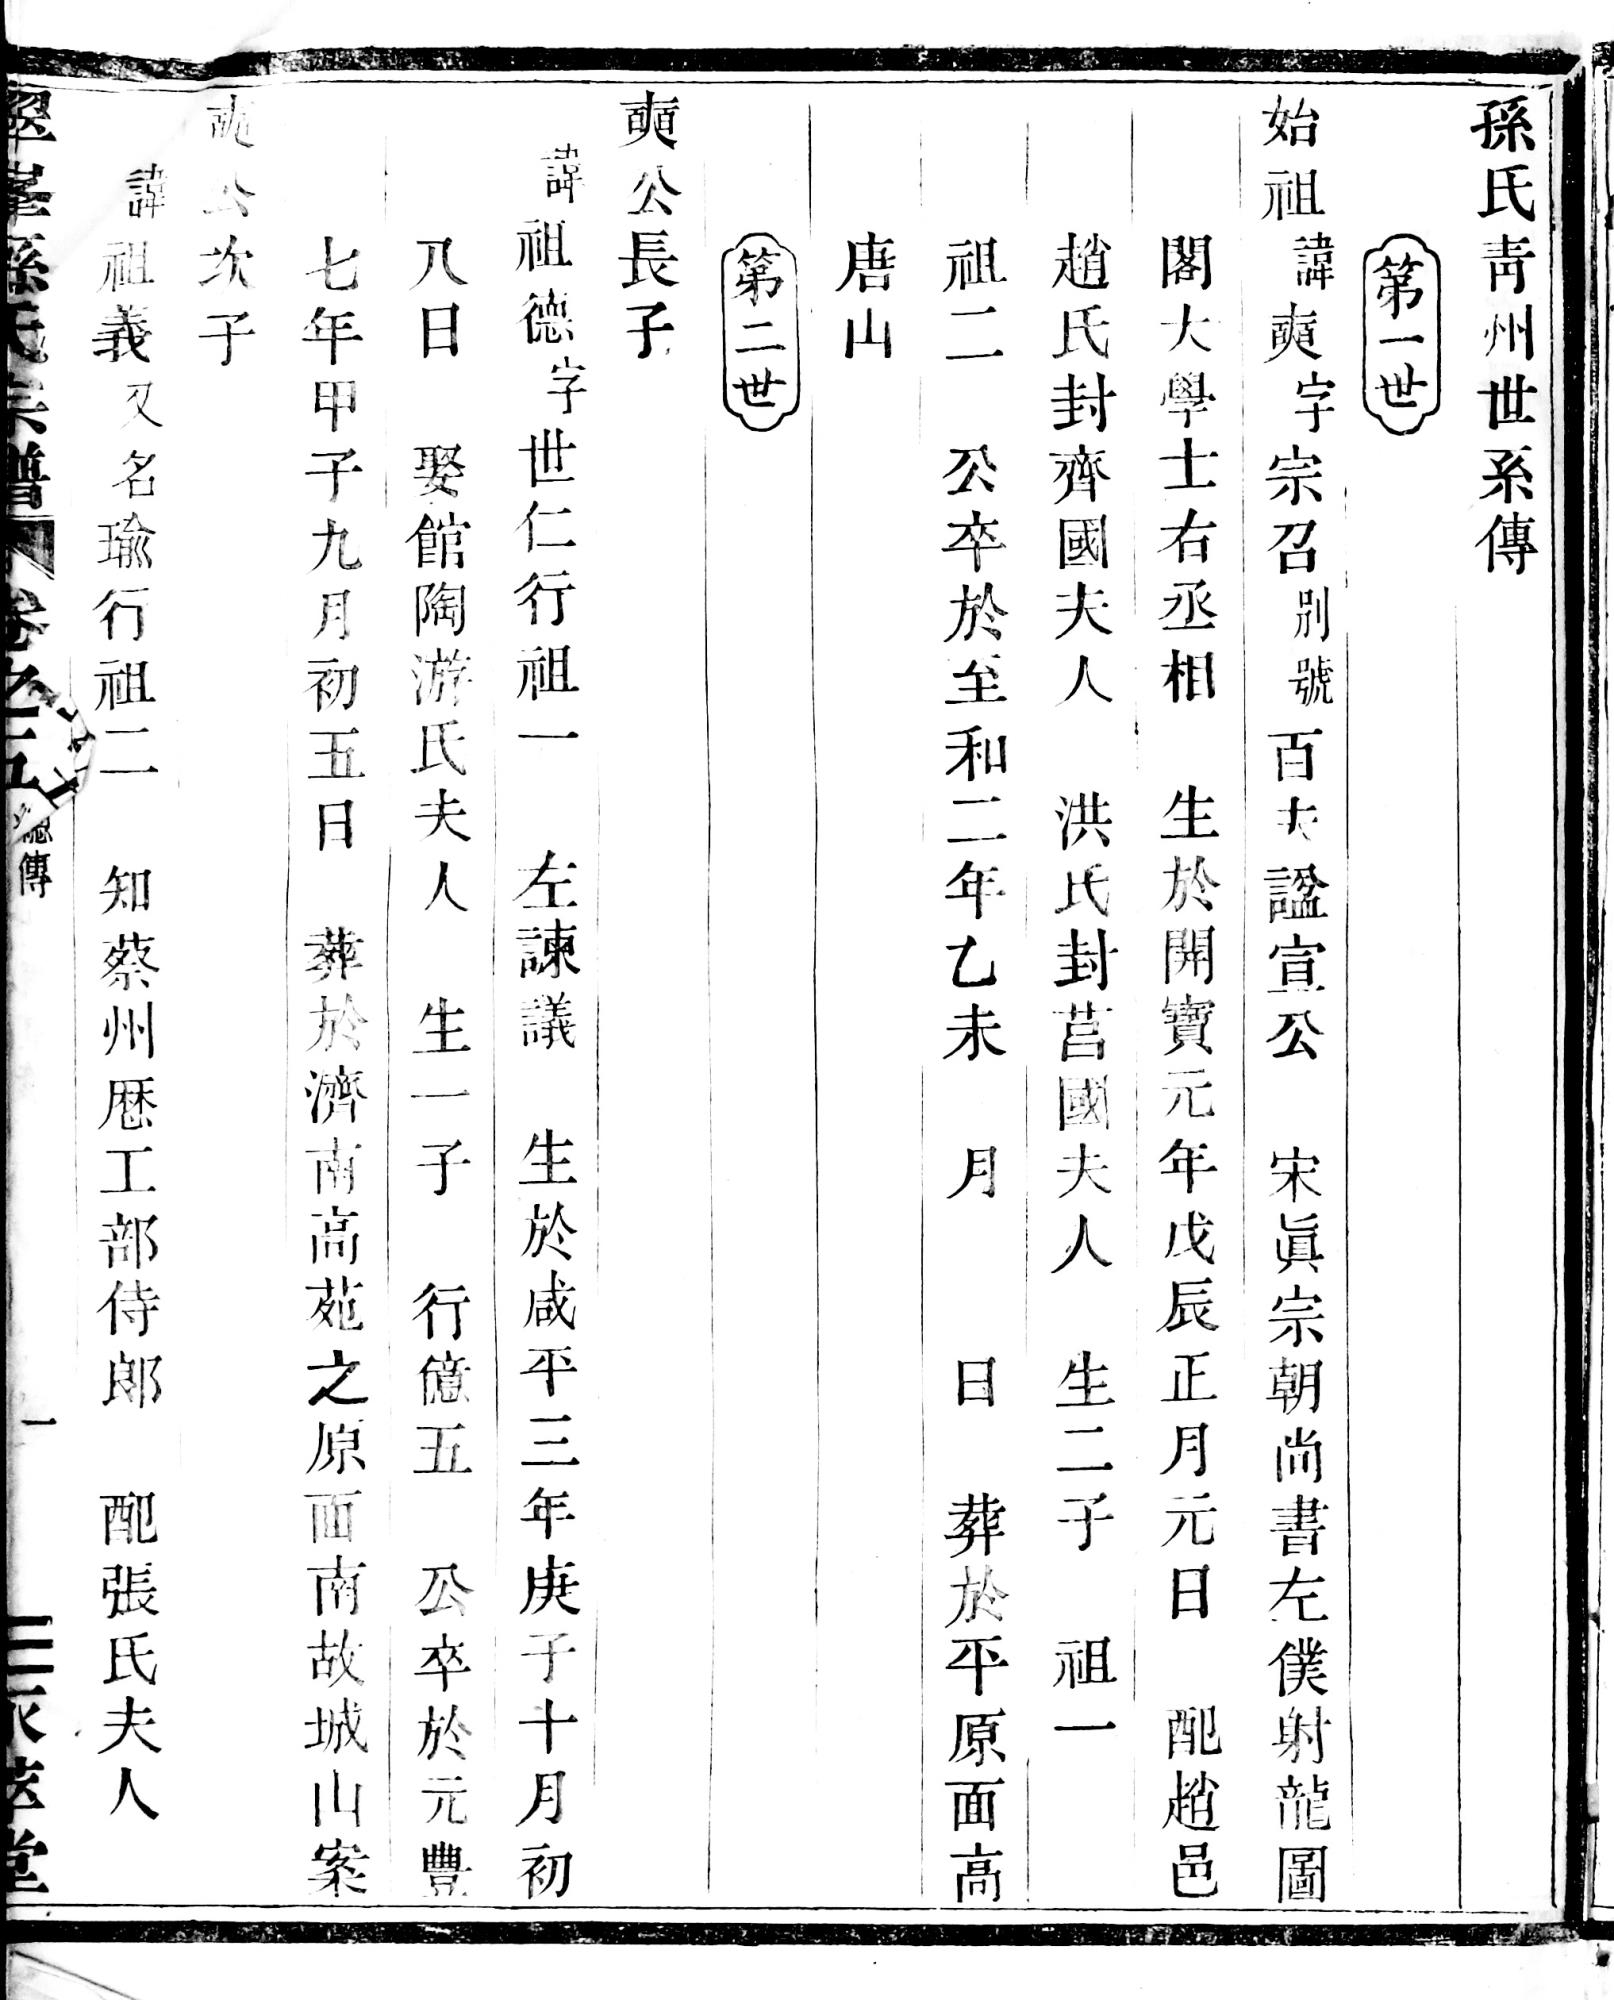 孫氏靑州世系傳
第一世
始祖諱奭字宗召別號百夫諡宣公　宋眞宗朝尚書左僕射龍圖
閣大學士右丞相　生於開寶元年戊辰正月元日　配趙邑
趙氏封齊國夫人　洪氏封莒國夫人　生二子　祖一
祖二　公卒於至和二年乙未　月　日　葬於平原面高
唐山
第二世
奭公長子
諱祖德字世仁行祖一　左諫議　生於咸平三年庚子十月初
八日　娶館陶游氏夫人　生一子　行億五　公卒於元豐
七年甲子九月初五日　葬於濟南高苑之原面南故城山案
奭公次子
諱祖義又名瑜行祖二　知蔡州歴工部侍郎　配張氏夫人
翠峯孫氏宗譜　卷之　總傳　一　萃堂